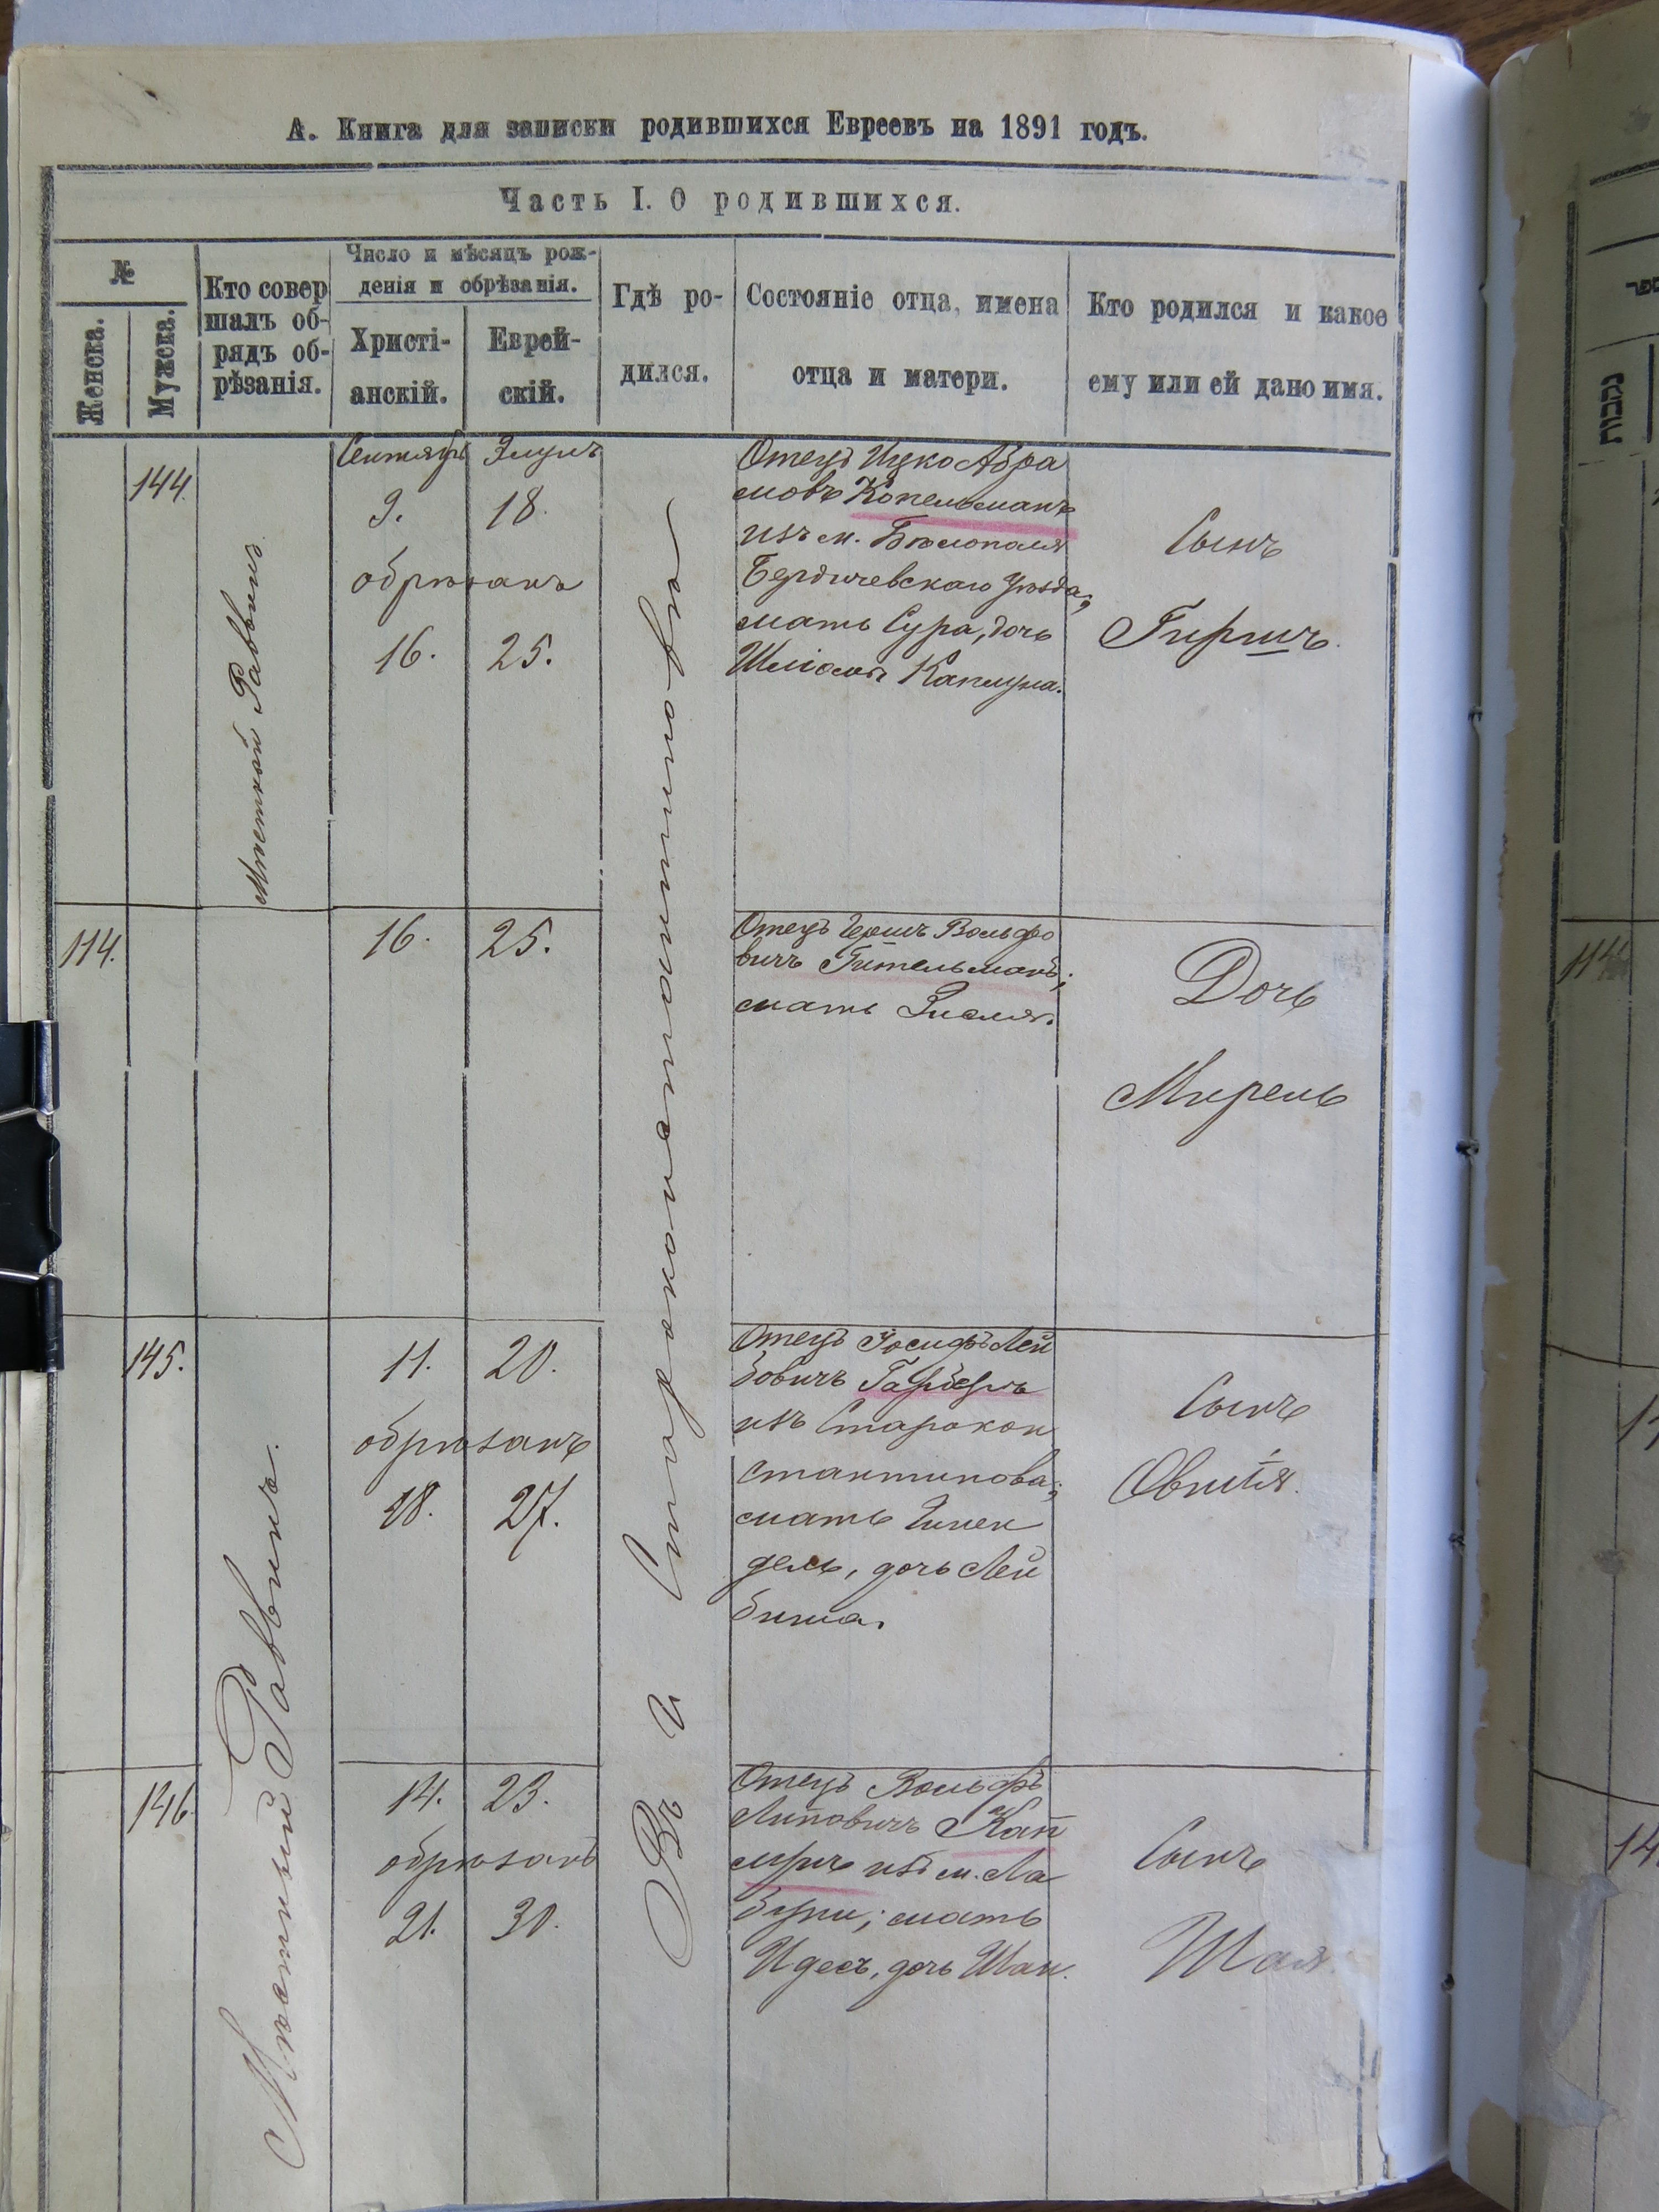 А. Книга для записки родившихся Евреевъ на 1891 годъ.
Часть I. О родившихся.
№
Женска.
Мужска.
Кто совер
шалъ об-
рядъ об-
рѣзанія.
Число и мѣсяцъ рож-
денія и обрѣзанія.
Христі-
анскій.
Еврей-
скій.
Гдѣ ро-
дился.
Состояніе отца, имена
отца и матери.
Кто родился и какое
ему или ей дано имя.
144.
Мѣстный Раввинъ.
Сентябрь Элулъ
9. 18.
обрѣзанъ
16. 25.
Въ г. Староконстантиновѣ
Отецъ Ицко Абра
мовъ Копельманъ
изъ м. Бѣлополя
Бердичевскаго уѣзда;
мать Сура, дочь
Шліомы Каплуна.
Сынъ
Гиршъ.
114.
16. 25.
Отецъ Гершъ Вольфо
вичъ Гительманъ;
мать
Дочь
Мирель
145.
Мѣстный Раввинъ.
11. 20.
обрѣзанъ
18. 27.
Отецъ Іосифъ Лей
бовичъ Гарберъ
изъ Старокон
стантинова;
мать Шпен
дель, дочь Лей
биша.
Сынъ
146.
14. 23.
обрѣзанъ
21. 30.
Отецъ Вольфъ
Липовичъ
изъ м. Ла
бунь; мать
Идесъ, дочь Шаи.
Сынъ
Шая.
114
14